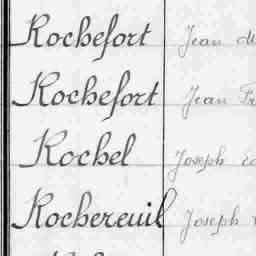 Rochefort Jean
Rochefort Jean
Rochel Joseph
Rochereuil Joseph